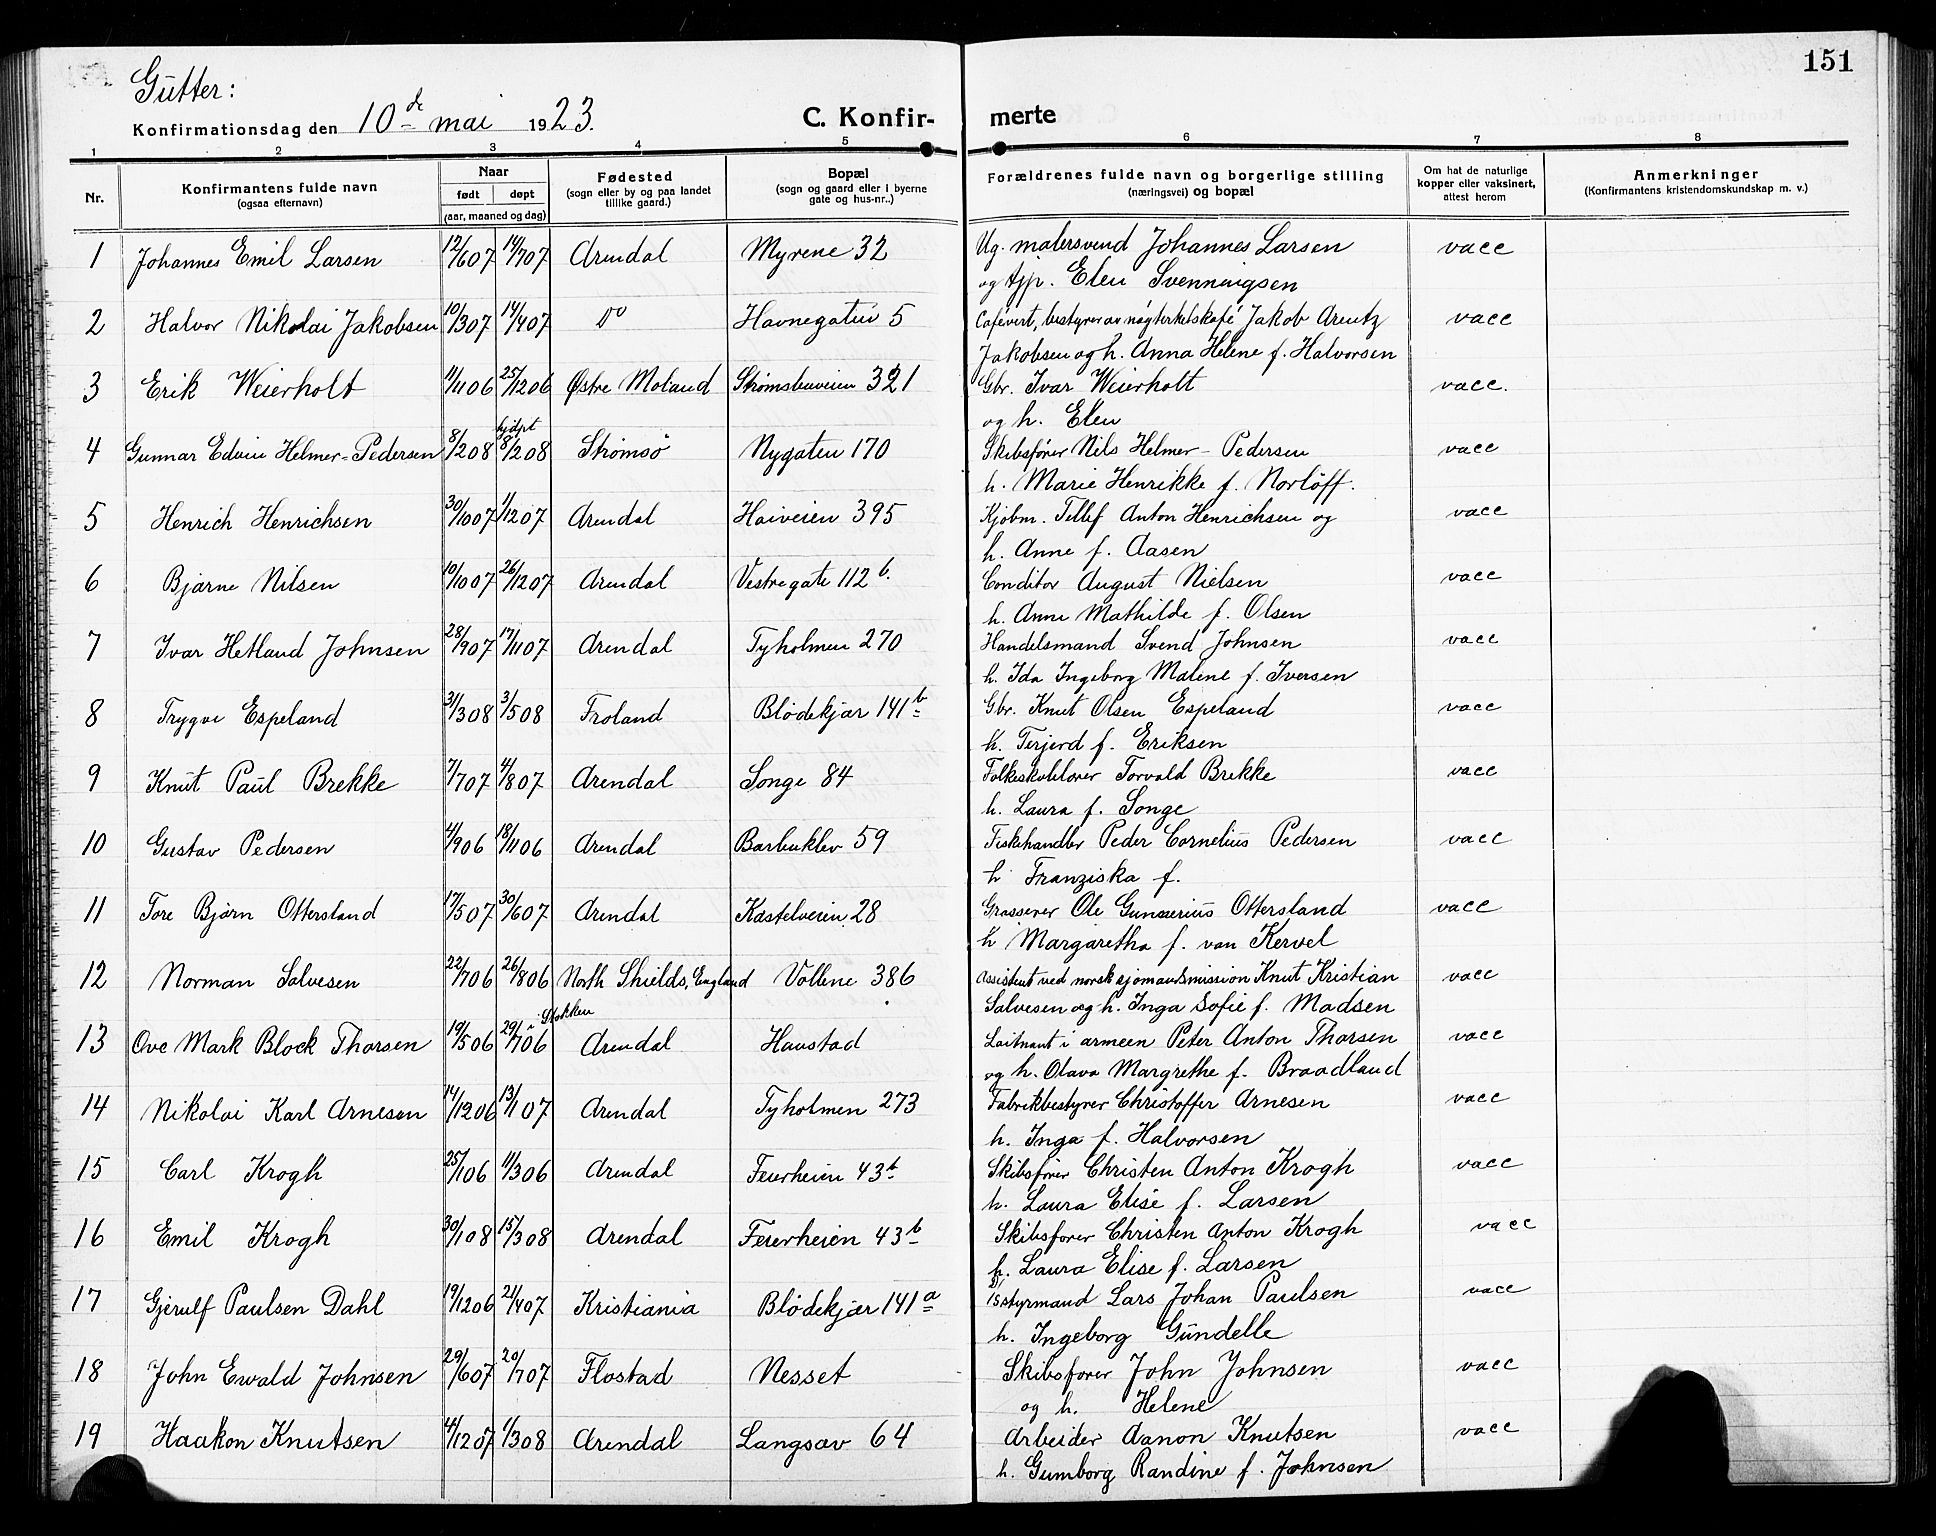 151
Gutter:
Konfirmationsdag den 10de mai 1923.
C. Konfirmerte
1 2 3 4 5 6 7 8
Nr.
Konfirmantens fulde navn
(ogsaa efternavn)
Naar
født døpt
(aar, maaned og dag)
Fødested
(sogn eller by og paa landet
tillike gaard.)
Bopæl
(sogn og gaard eller i byerne
gate og hus-nr..)
Forældrenes fulde navn og borgerlige stilling
(næringsvei) og bopæl
Om hat de naturlige
kopper eller vaksinert,
attest herom
Anmerkninger
(Konfirmantens kristendomskundskap m. v.)
1 Johannes Emil Larsen 12/6 07 14/7 07 Arendal Myrene 32 Ug. malersvend Johannes Larsen vacc
og tjp. Elen Svenningsen
2 Halvor Nikolai Jakobsen 10/3 07 14/4 07 Do Havnegaten 5 Cafévert, bestyrer av Jakob Arentz vacc
Jakobsen og h. Anna Helene f. Halvorsen
3 Erik Weierholt 11/11 06 25/12 06 Østre Moland Strømsbuveien 321 Gbr. Ivar Weierholt vacc.
og h. Elen
4 Gunnar Edvin Helmer-Pedersen 8/2 08 hjdpt 8/2 08 Strømsö Nygaten 170 Skibsfører Nils Helmer-Pedersen vacc
h. Marie Henrikke f. Norlöff.
5 Henrich Henrichsen 30/10 07 1/12 07 Arendal Haiveien 395 Kjøbm. Tellef Anton Henrichsen og vacc
h. Anne f. Aasen
6 Bjarne Nilsen 10/10 07 26/12 07 Arendal Vestregate 112 b. Conditor August Nielsen vacc
h. Anne Mathilde f. Olsen
7 Ivar Hetland Johnsen 28/9 07 17/11 07 Arendal Tyholmen 270 Handelsmand Svend Johnsen vacc
h. Ida Ingeborg Malene f. Iversen
8 Trygve Espeland 31/3 08 3/5 08 Froland Blødekjær 141 b Gbr. Knut Olsen Espeland vacc
h. Terjerd f. Eriksen
9 Knut Paul Brekke 7/7 07 4/8 07 Arendal Songe 84 Folkeskolelærer Torvald Brekke vacc
h. Laura f. Songe
10 Gustav Pedersen 4/9 06 18/11 06 Arendal Barbuklev 59 Fiskehandler Peder Cornelius Pedersen vacc
h Franziska f.
11 Tore Bjørn Ottersland 17/5 07 30/6 07 Arendal Kastelveien 28 Grosserer Ole Gunnerius Ottersland vacc
h Margaretha f. van Kervel
12 Norman Salvesen 22/7 06 26/8 06 North Shields, England Vollene 386 Assistent ved norsk sjømandsmission Knut Kristian vacc
Salvesen og h. Inga Sofie f. Madsen
13 Ove Mark Block Thorsen 19/5 06 29/7 06 Stokken Arendal Havstad Løitnant i armeen Peter Anton Thorsen vacc
og h. Olava Margrethe f. Braadland
14 Nikolai Karl Arnesen 14/12 06 13/1 07 Arendal Tyholmen 273 Fabrikbestyrer Christoffer Arnesen vacc
h. Inga f. Halvorsen
15 Carl Krogh 25/1 06 11/3 06 Arendal Feierheien 43 b Skibsfører Christen Anton Krogh vacc
h. Laura Elise f. Larsen
16 Emil Krogh 30/1 08 15/3 08 Arendal Feierheien 43 b Skibsfører Christen Anton Krogh vacc
h. Laura Elise f. Larsen
17 Gjerulf Paulsen Dahl 19/12 06 21/4 07 Kristiania Blødekjær 141 a styrmand Lars Johan Paulsen vacc
h. Ingeborg Gundelle
18 John Ewald Johnsen 29/6 07 20/7 07 Flostad Nesset Skibsfører John Johnsen vacc
og h. Helene
19 Haakon Knutsen 4/12 07 1/3 08 Arendal Langsæv 64 Arbeider Aanon Knutsen vacc
h. Gumborg Randine f. Johnsen